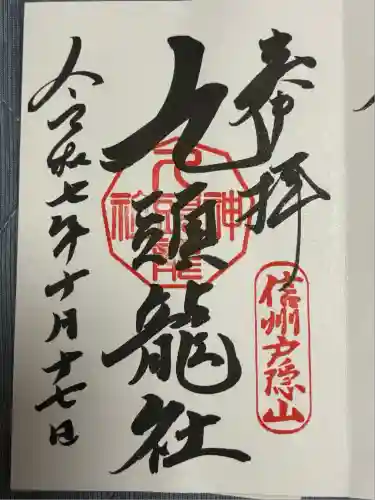 奉拝
信州戸隠山
九頭龍社
令和七年十月十七日